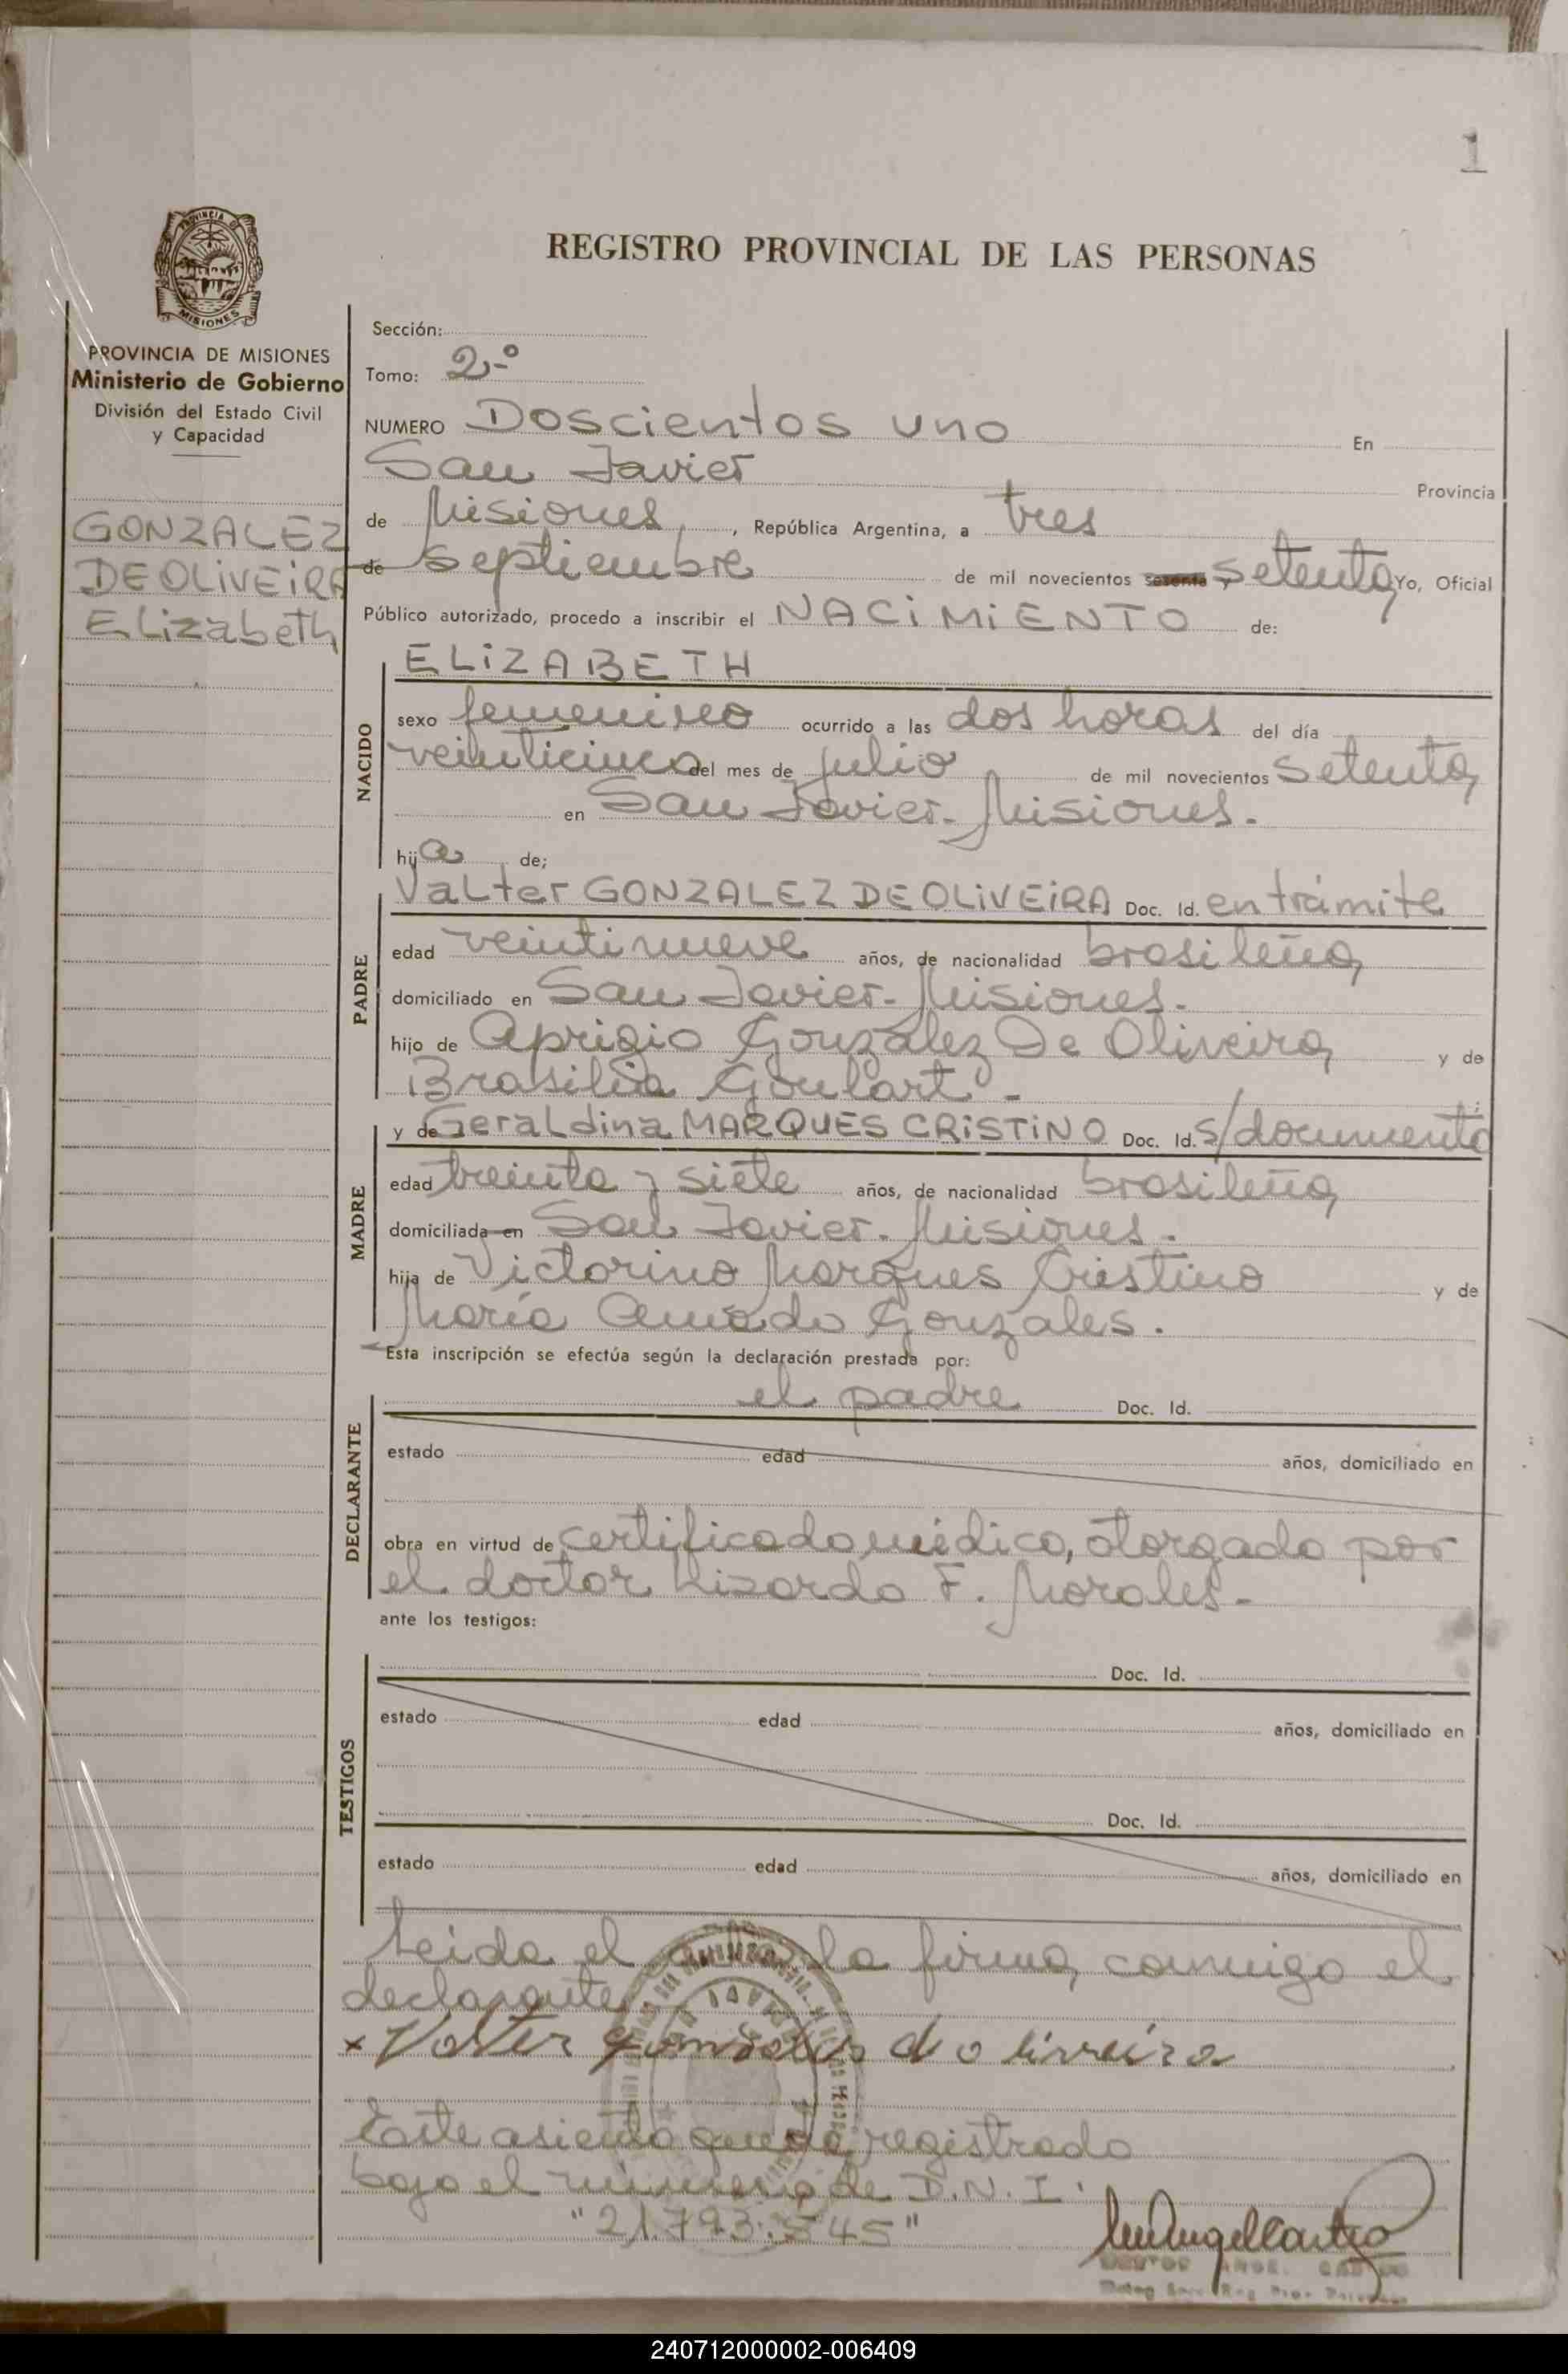 1
PROVINCIA DE MISIONES
REGISTRO PROVINCIAL DE LAS PERSONAS
PROVINCIA DE MISIONES
Ministerio de Gobierno
División del Estado Civil
y Capacidad
GONZALEZ
DE OLIVEIRA
Elizabeth
Sección:
Tomo: 2.-º
NUMERO Doscientos uno En
San Javier Provincia
de Misiones, República Argentina, a tres
de septiembre de mil novecientos sesenta y setenta, Yo, Oficial
Público autorizado, procedo a inscribir el NACIMIENTO de:
NACIDO
ELIZABETH
sexo femenino ocurrido a las dos horas del día
veinticinco del mes de julio de mil novecientos setenta,
en San Javier-Misiones.
hija de;
PADRE
Valter GONZALEZ DE OLIVEIRA Doc. Id. en trámite
edad veintinueve años, de nacionalidad brasileña,
domiciliado en San Javier-Misiones.
hijo de Aprigio González De Oliveira, y de
Brasilia Goulart.-
MADRE
y de Geraldina MARQUES CRISTINO Doc. Id. s/documento
edad treinta y siete años, de nacionalidad brasileña,
domiciliada en San Javier-Misiones.
hija de Victorino Marques Cristino y de
María Amado Gonzales.
Esta inscripción se efectúa según la declaración prestada por:
DECLARANTE
el padre Doc. Id.
estado edad años, domiciliado en
obra en virtud de certificado médico, otorgado por
el doctor Lizardo F. Morales.-
ante los testigos:
TESTIGOS
Doc. Id.
estado edad años, domiciliado en
Doc. Id.
estado edad años, domiciliado en
Leida el acta, la firma, conmigo el
declarante,
x Valter
Este asiento queda registrado
bajo el número de D.N.I.
"21.793.545"
240712000002-006409